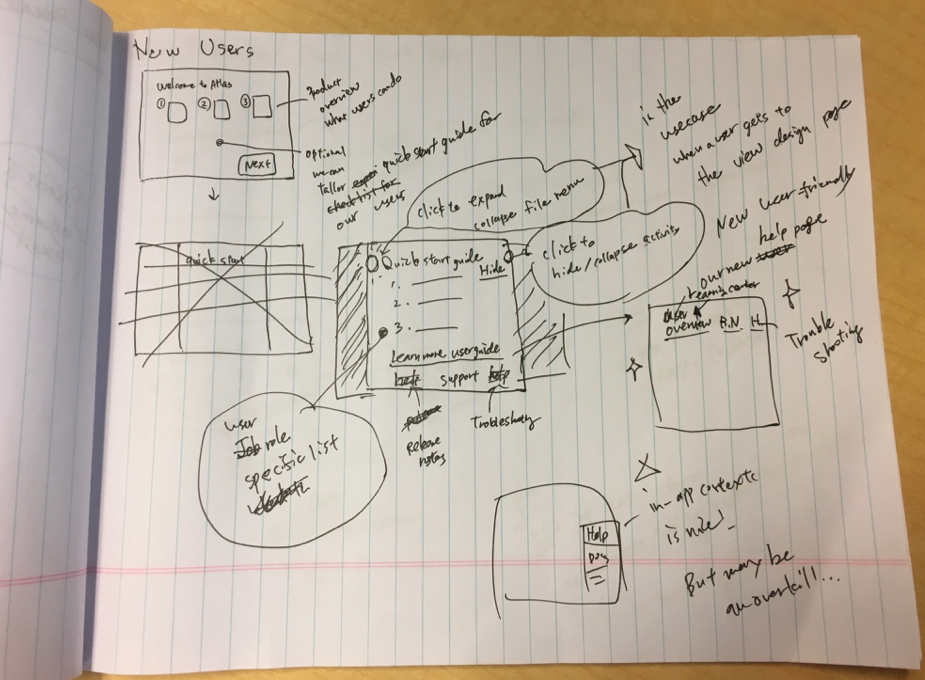 New Users
Welcome to Atlas
① ② ③
Next
Product
overview
what users can do
optional
we can
tailor quick start guide for
checklist for
our users
click to expand
collapse file menu
is the
usecase
when a user gets to
the view design page
quick start
Quick start guide
Hide
1.
2.
3.
Learn more user guide
support help
click to
hide/collapse activity
New user friendly
help page
our new
Learning center
user
overview R.N H
Trouble
shooting
user
Job role
specific list
Release
notes
Help
in-app contexts
is nice!
But may be
an overkill...